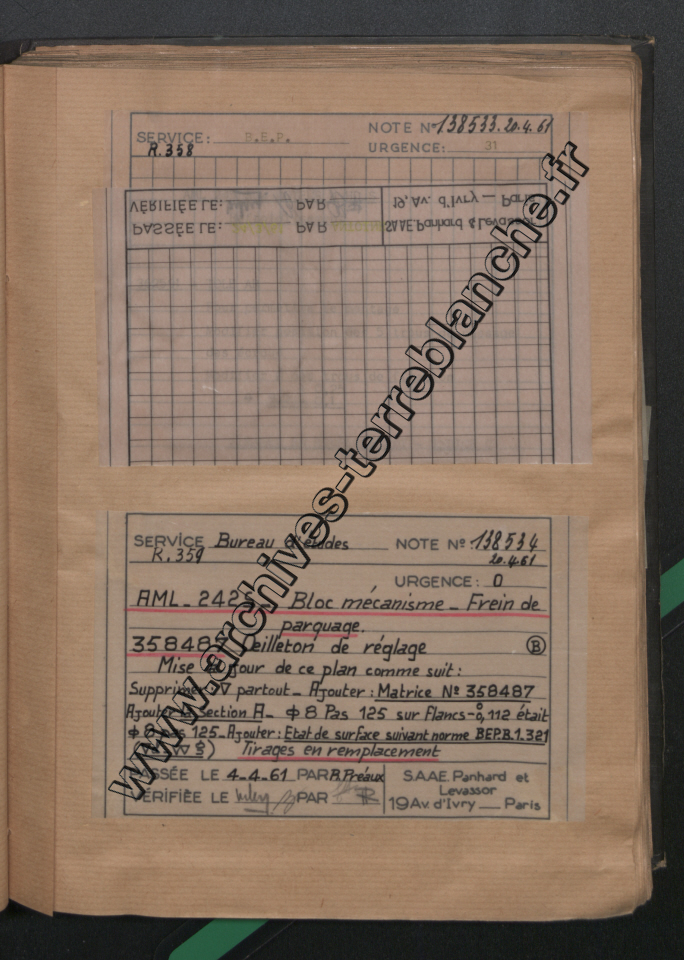 SERVICE: B.E.P. NOTE N° 138533. 20.4.61
R.358 URGENCE: 31
VÉRIFIÉE LE: PAR 19, Av. d'Ivry — Paris
PASSÉE LE: PAR ANTOINE SAAE Panhard & Levassor
www.archives-terreblanche.fr
SERVICE Bureau d'études NOTE N° 138534
R.359 20.4.61
URGENCE: 0
AML_242 Bloc mécanisme _ Frein de
parquage.
35848 de réglage B
Mise jour de ce plan comme suit:
Supprimer partout _ Ajouter: Matrice N° 358487
Ajouter Section A_ ϕ8 Pas 125 sur Flancs 112 était
ϕ8 Pas 125_Ajouter: Etat de surface suivant norme BEP.B.1.321
Tirages en remplacement
PASSÉE LE 4_4_61 PAR R.Préaux S.A.A.E. Panhard et
Levassor
VÉRIFIÉE LE PAR 19 Av. d'Ivry — Paris